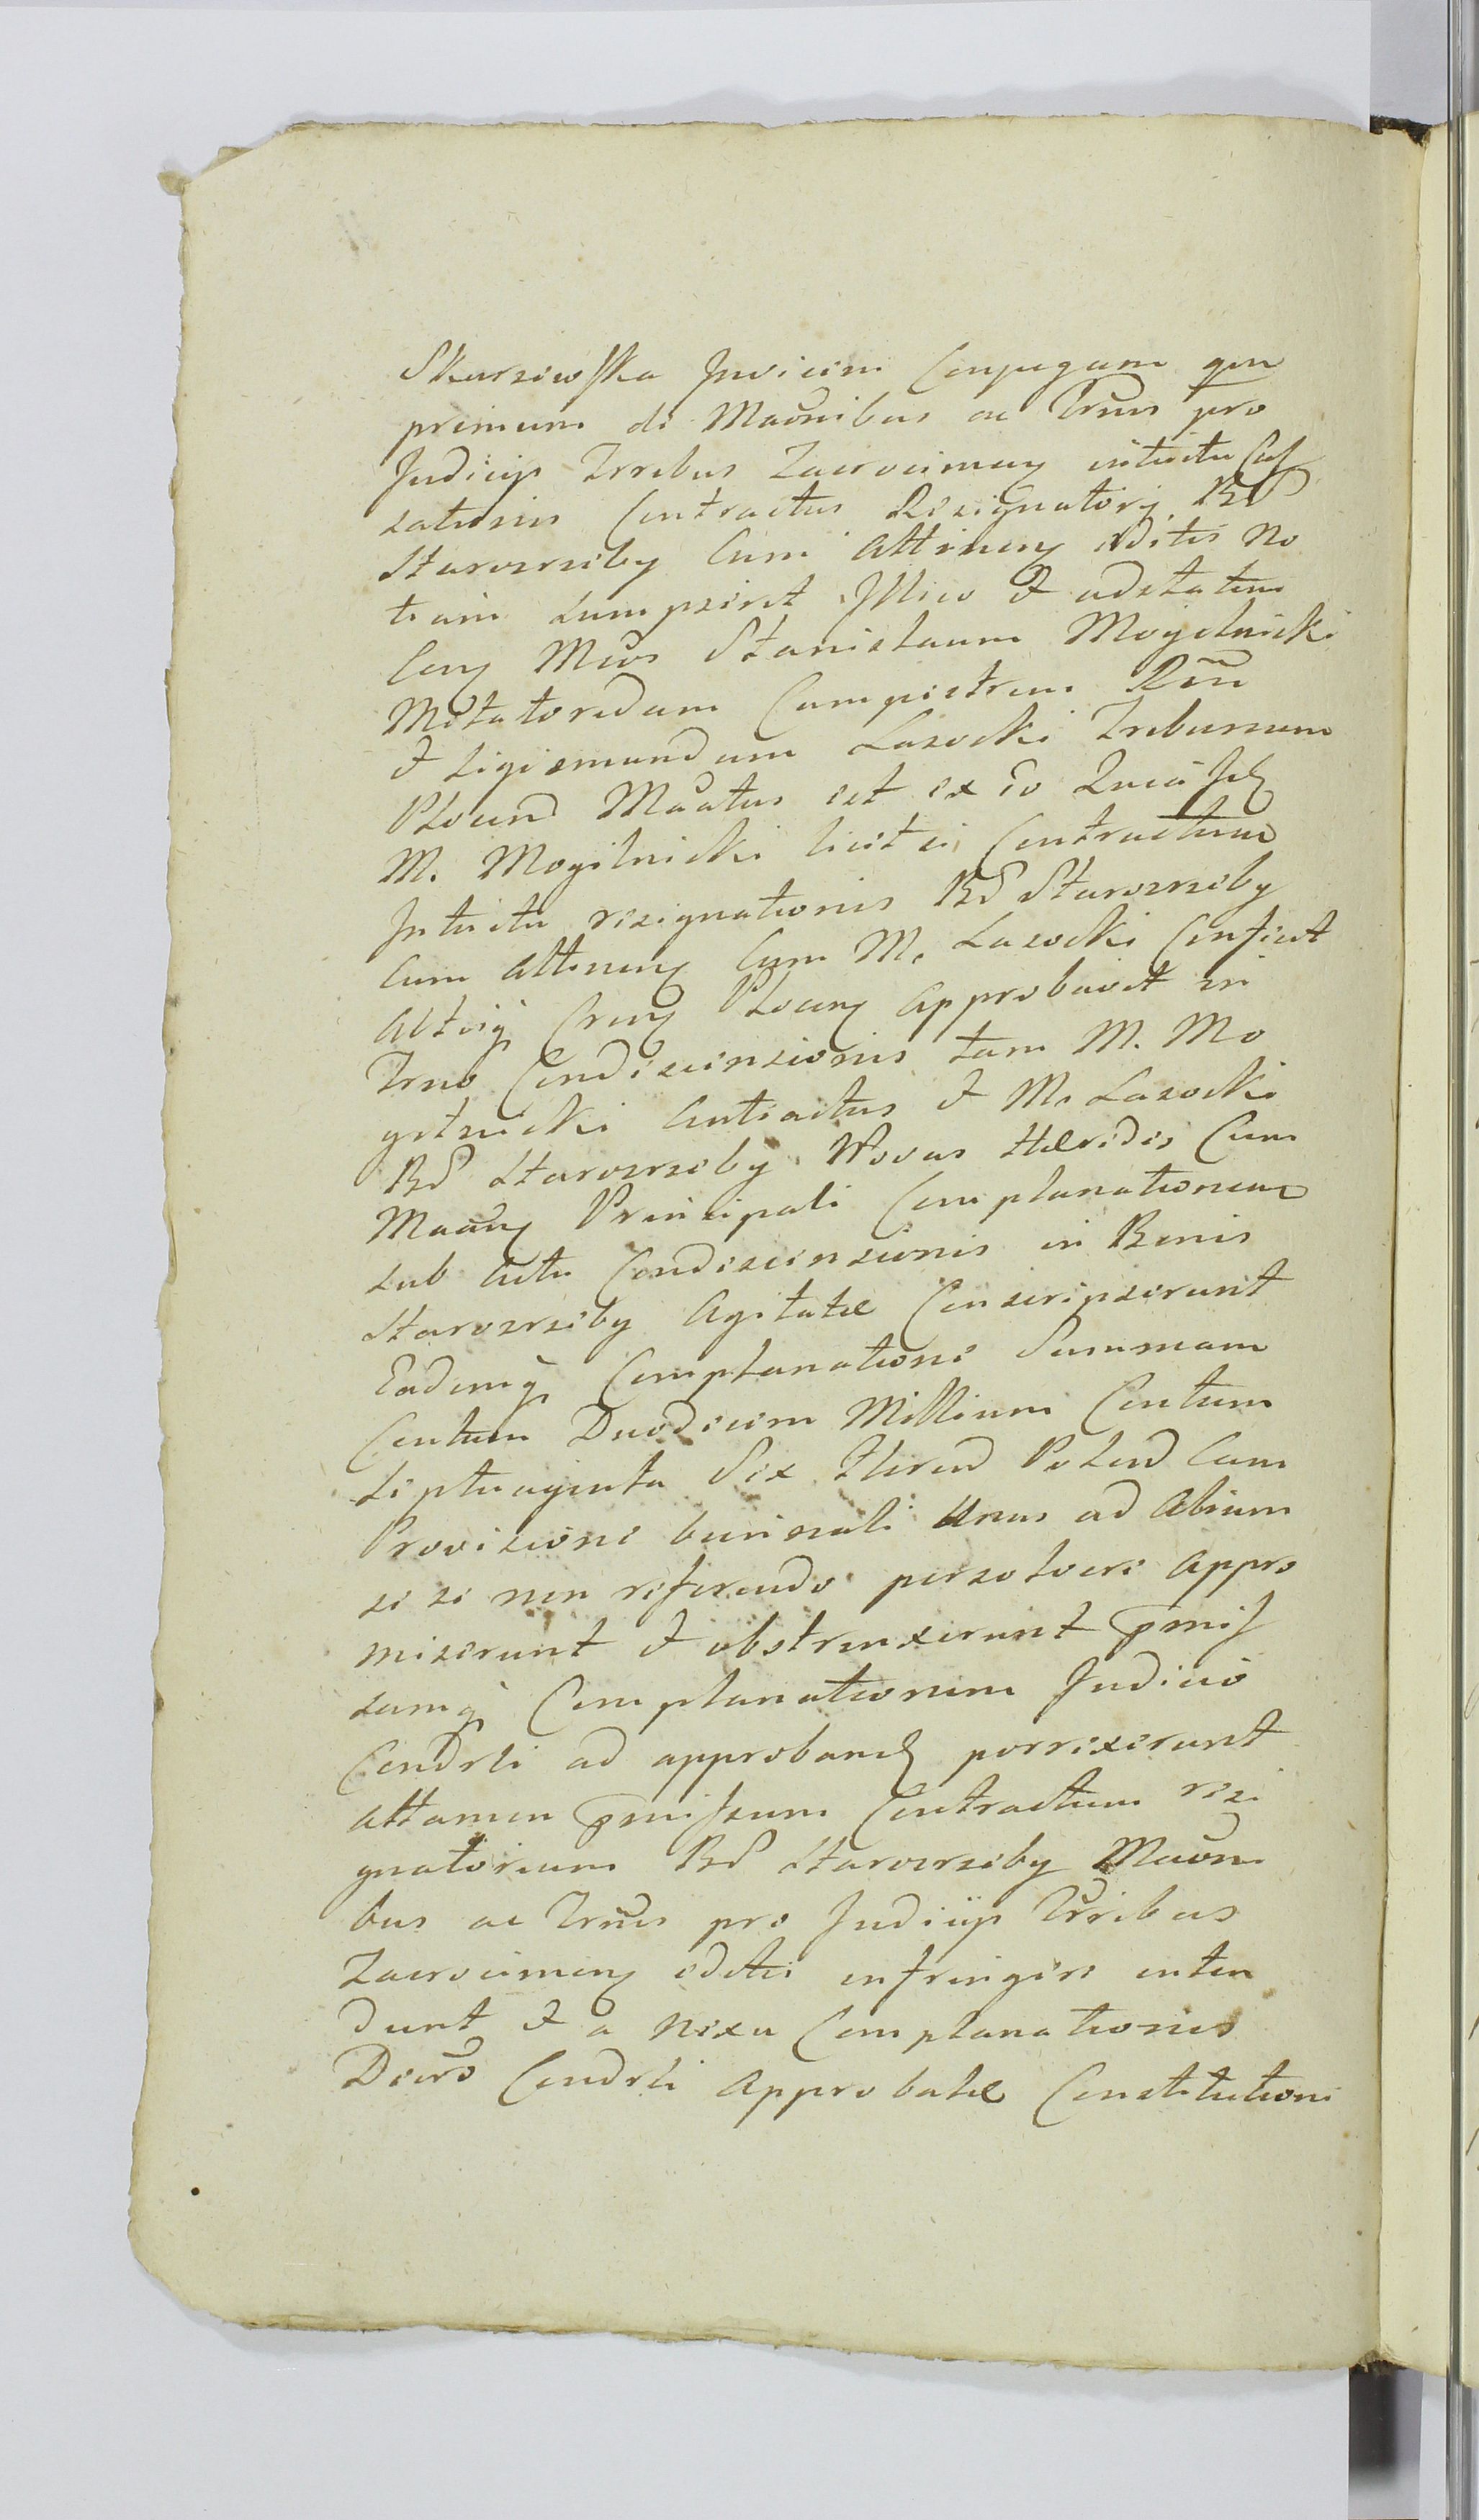 Skarzewska Invicem Conjugum qm
primum de Maõnibus ac Trñis pro
Judicijs Trribus Zacrocimen intuitu Cas
sationis Contractus Resignatorij Bd
Starozreby Cum Attinen editis No
tiam sumpsirit Illico et adstatim
Cons Mcos Stanislaum Mogilnicki
Metatoredum Campestrem Rñi
et Sigismundum Lasocki Tribunum
Plocen Maatus est ex eo Quia
M. Mogilnicki licet ei Contractum
Intuitu resignationis Bd Starozreby
Cum Attinen Cum M. Lasocki Confict
Actisq Plocen Approbavit in
Trno Condescensionis tam M. Mo
gilnicki Antiactus et M. Lasocki
Bd Starozreby Novus Hæredes Cum
Maan Principali Complanationem
sub Actu Condescensionis in Bonis
Starozreby Agitatæ Conscripserunt
Eademq Complanatione Summam
Centum Duodecim Millium Centum
Septuaginta Sex Floren Polon Cum
Provisione Unus ad Alium
se se non referendo persolvere Appro
miserunt et obstrinxerunt pmis
samq Complanationem Judicio
Condrli ad approband porrexerunt
attamen pmissum Contractum resi
gnatorium Bd Starozreby Maõni
bus ac Trñis pro Judicijs Trribus
Zacrocimen editis infringere inten
dunt et a nexu Complanationis
Decro Condrli Approbatæ Constitutioni